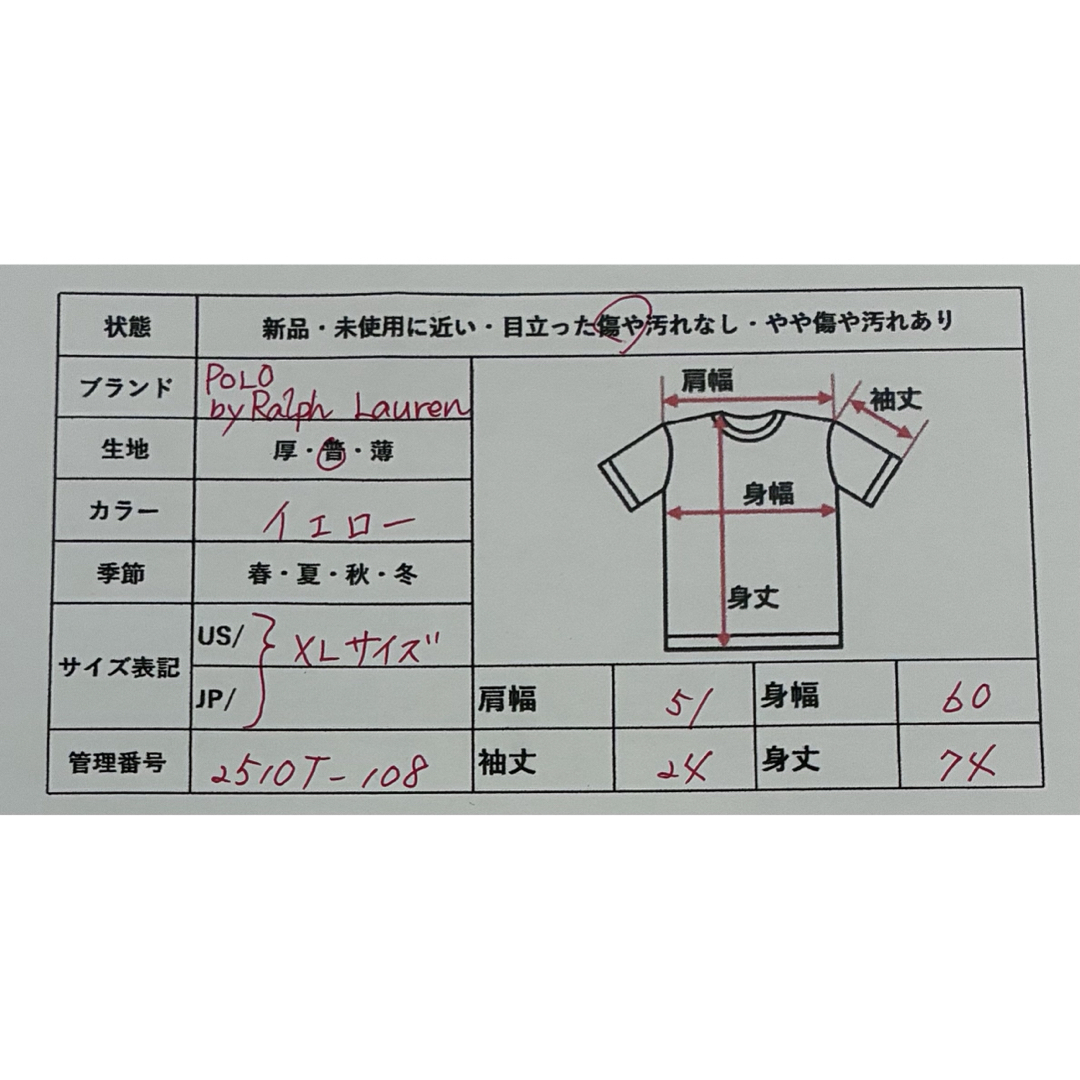 状態 新品・未使用に近い・目立った傷や汚れなし・やや傷や汚れあり
ブランド POLO
by Ralph Lauren
生地 厚・普・薄
カラー イエロー
季節 春・夏・秋・冬
サイズ表記 US/ XLサイズ
JP/
管理番号 2510T-108
肩幅
袖丈
身幅
身丈
肩幅 51 身幅 60
袖丈 24 身丈 74